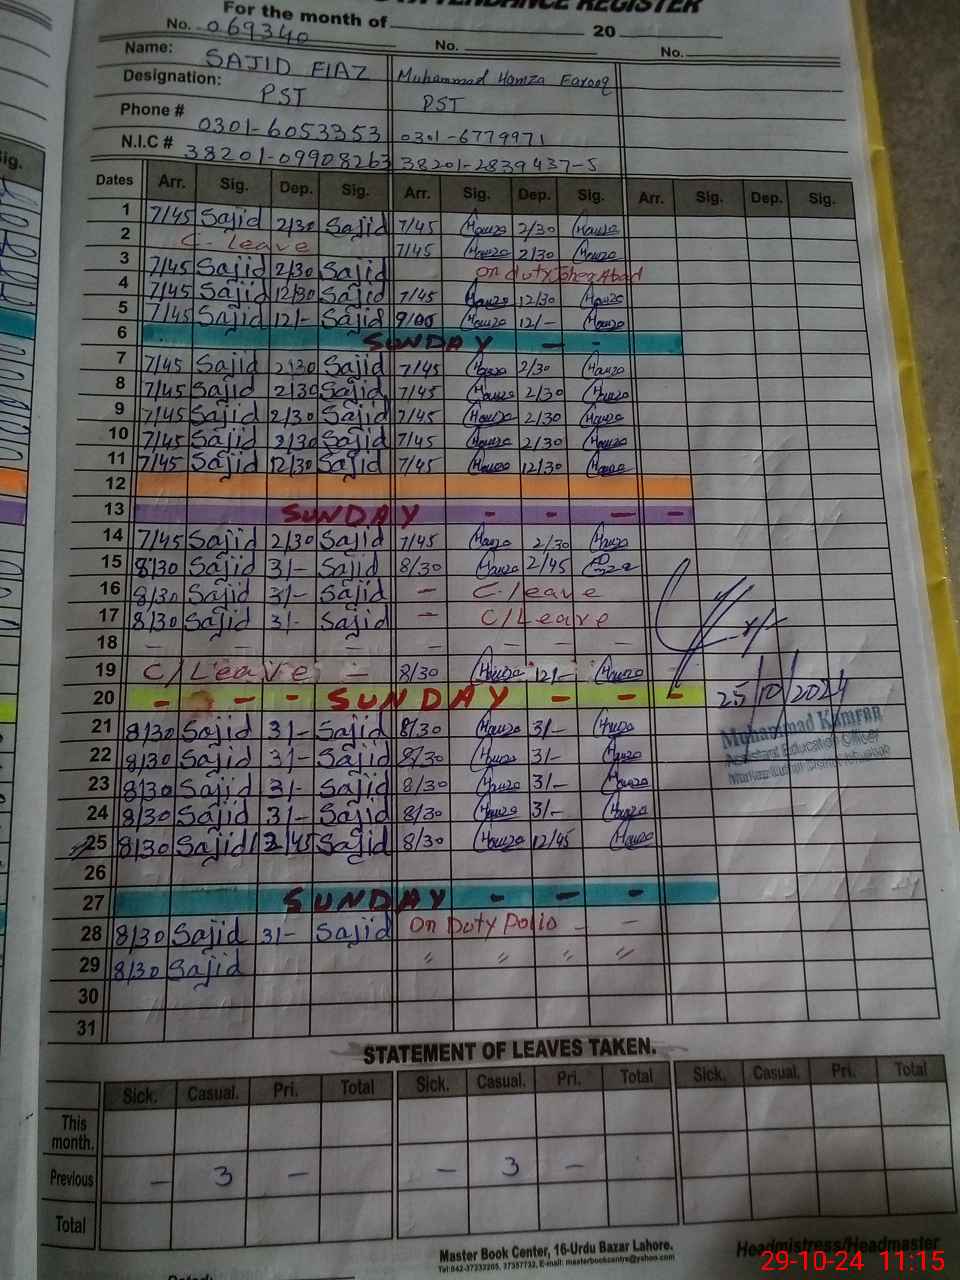 ATTENDANCE REGISTER
For the month of 20
No. 069340 No. No.
Name: SAJID FIAZ Muhammad Hamza Farooq
Designation: PST PST
Phone # 0301-6053353 0301-6779971
N.I.C # 38201-09908263 38201-2839437-5
Dates Arr. Sig. Dep. Sig. Arr. Sig. Dep. Sig. Arr. Sig. Dep. Sig.
1 7/45 Sajid 2/30 Sajid 7/45 Hamza 2/30 Hamza
2 C- Leave 7/45 Hamza 2/30 Hamza
3 7/45 Sajid 2/30 Sajid on duty
4 7/45 Sajid 12/30 Sajid 7/45 Hamza 12/30 Hamza
5 7/45 Sajid 12/- Sajid 9/00 Hamza 12/- Hamza
6 SUNDAY - -
7 7/45 Sajid 2/30 Sajid 7/45 Hamza 2/30 Hamza
8 7/45 Sajid 2/30 Sajid 7/45 Hamza 2/30 Hamza
9 7/45 Sajid 2/30 Sajid 7/45 Hamza 2/30 Hamza
10 7/45 Sajid 2/30 Sajid 7/45 Hamza 2/30 Hamza
11 7/45 Sajid 12/30 Sajid 7/45 Hamza 12/30 Hamza
12
13 SUNDAY - - - -
14 7/45 Sajid 2/30 Sajid 7/45 Hamza 2/30 Hamza
15 8/30 Sajid 3/- Sajid 8/30 Hamza 2/45
16 8/30 Sajid 3/- Sajid - C-leave
17 8/30 Sajid 3/- Sajid - C/Leave
18 - - - - - - - -
19 C/Leave - 8/30 Hamza 12/- Hamza
20 - - - SUNDAY - - -
25/10/2024
21 8/30 Sajid 3/- Sajid 8/30 Hamza 3/- Hamza
Muhammad Kamran
22 8/30 Sajid 3/- Sajid 8/30 Hamza 3/- Hamza
Assistant Education Officer
23 8/30 Sajid 3/- Sajid 8/30 Hamza 3/- Hamza
24 8/30 Sajid 3/- Sajid 8/30 Hamza 3/- Hamza
25 8/30 Sajid 12/45 Sajid 8/30 Hamza 12/45 Hamza
26
27 SUNDAY - - -
28 8/30 Sajid 3/- Sajid On Duty Polio - -
29 8/30 Sajid " " " "
30
31
STATEMENT OF LEAVES TAKEN.
Sick. Casual. Pri. Total Sick. Casual. Pri. Total Sick. Casual. Pri. Total
This month.
Previous - 3 - - 3 -
Total
Master Book Center, 16-Urdu Bazar Lahore.
Headmistress/Headmaster
Tel:042-37232205, 37357732, E-mail: masterbookcentre@yahoo.com
29-10-24 11:15